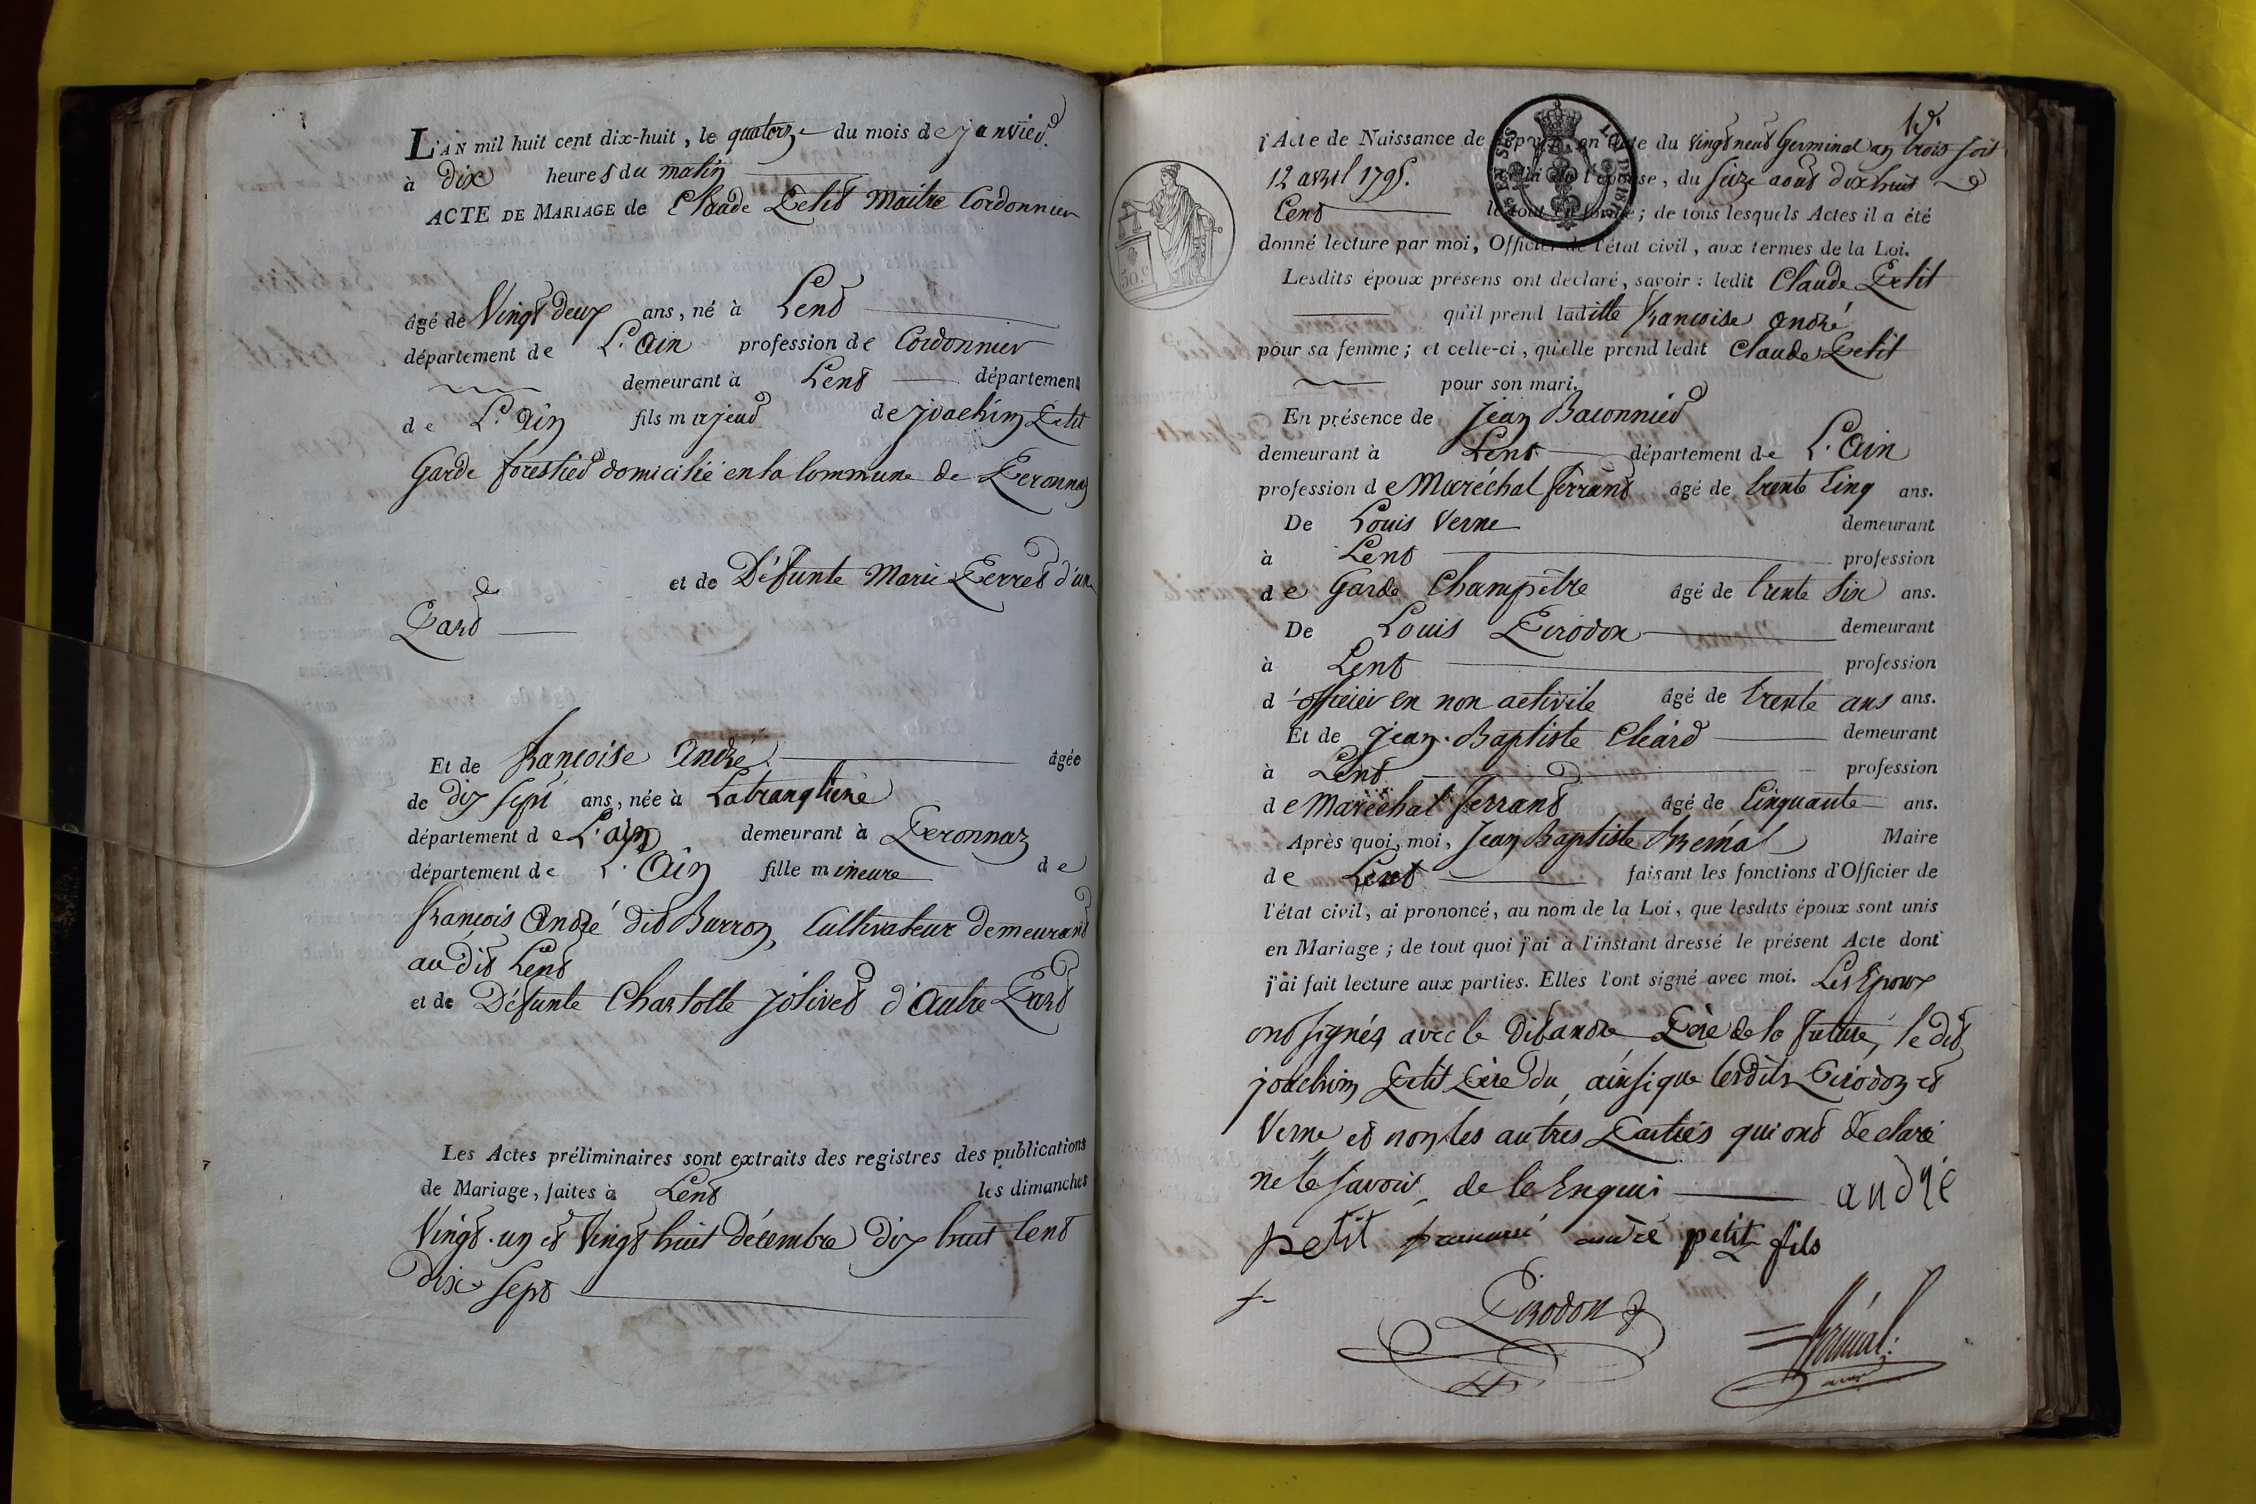 L'AN mil huit cent dix-huit, le quatorze du mois de janvier
à dix heures du matin
ACTE DE MARIAGE de Claude Petit Maitre Cordonnier
âgé de Vingt deux ans, né à Lent
département de L'Ain profession de Cordonnier
demeurant à Lent département
de L'Ain fils majeur de joachim Petit
Garde forestier domicilié en la Commune de Peronnaz
et de Défunte Marie Perret d'une
Part
Et de francoise André âgée
de dix sept ans, née à Latrancliere
département de L'Ain demeurant à Peronnaz
département de L'Ain fille mineure de
francois André dit Barron, Cultivateur demeurant
au dit Lent
et de Défunte Charlotte jolivet d'Autre Part
Les Actes préliminaires sont extraits des registres des publications
de Mariage, faites à Lent les dimanches
Vingt un et Vingt huit décembre dix huit Cent
dix Sept
l'Acte de Naissance de l'époux, en date du Vingt neuf Germinal an trois soit
12 avril 1795. celui de l'épouse, du seize aout dix huit
Cent le tout en forme; de tous lesquels Actes il a été
donné lecture par moi, Officier de l'état civil, aux termes de la Loi.
Lesdits époux présens ont déclaré, savoir: ledit Claude Petit
qu'il prend laditte francoise andré
pour sa femme; et celle-ci, qu'elle prend ledit Claude Petit
pour son mari.
En présence de Jean Baconnier
demeurant à Lent département de L'Ain
profession de Maréchal ferrant âgé de trente Cinq ans.
De Louis Verne demeurant
à Lent profession
de Garde Champêtre âgé de trente Six ans.
De Louis Pirodon demeurant
à Lent profession
d'officier en non activite âgé de trente ans ans.
Et de Jean-Baptiste Cléard demeurant
à Lent profession
de Maréchal ferrant âgé de Cinquante ans.
Après quoi, moi, Jean Baptiste frémal Maire
de Lent faisant les fonctions d'Officier de
l'état civil, ai prononcé, au nom de la Loi, que lesdits époux sont unis
en Mariage; de tout quoi j'ai à l'instant dressé le présent Acte dont
j'ai fait lecture aux parties. Elles l'ont signé avec moi. Les Epoux
ont signés avec le dit andre Père de la future, le dit
joachim Petit Père du, ainsi que lesdits Pirodon et
Verne et non les autres Parties qui ont déclaré
ne le savoir de le Enquis andré
petit andré petit fils
Pirodon
frémal
50.C